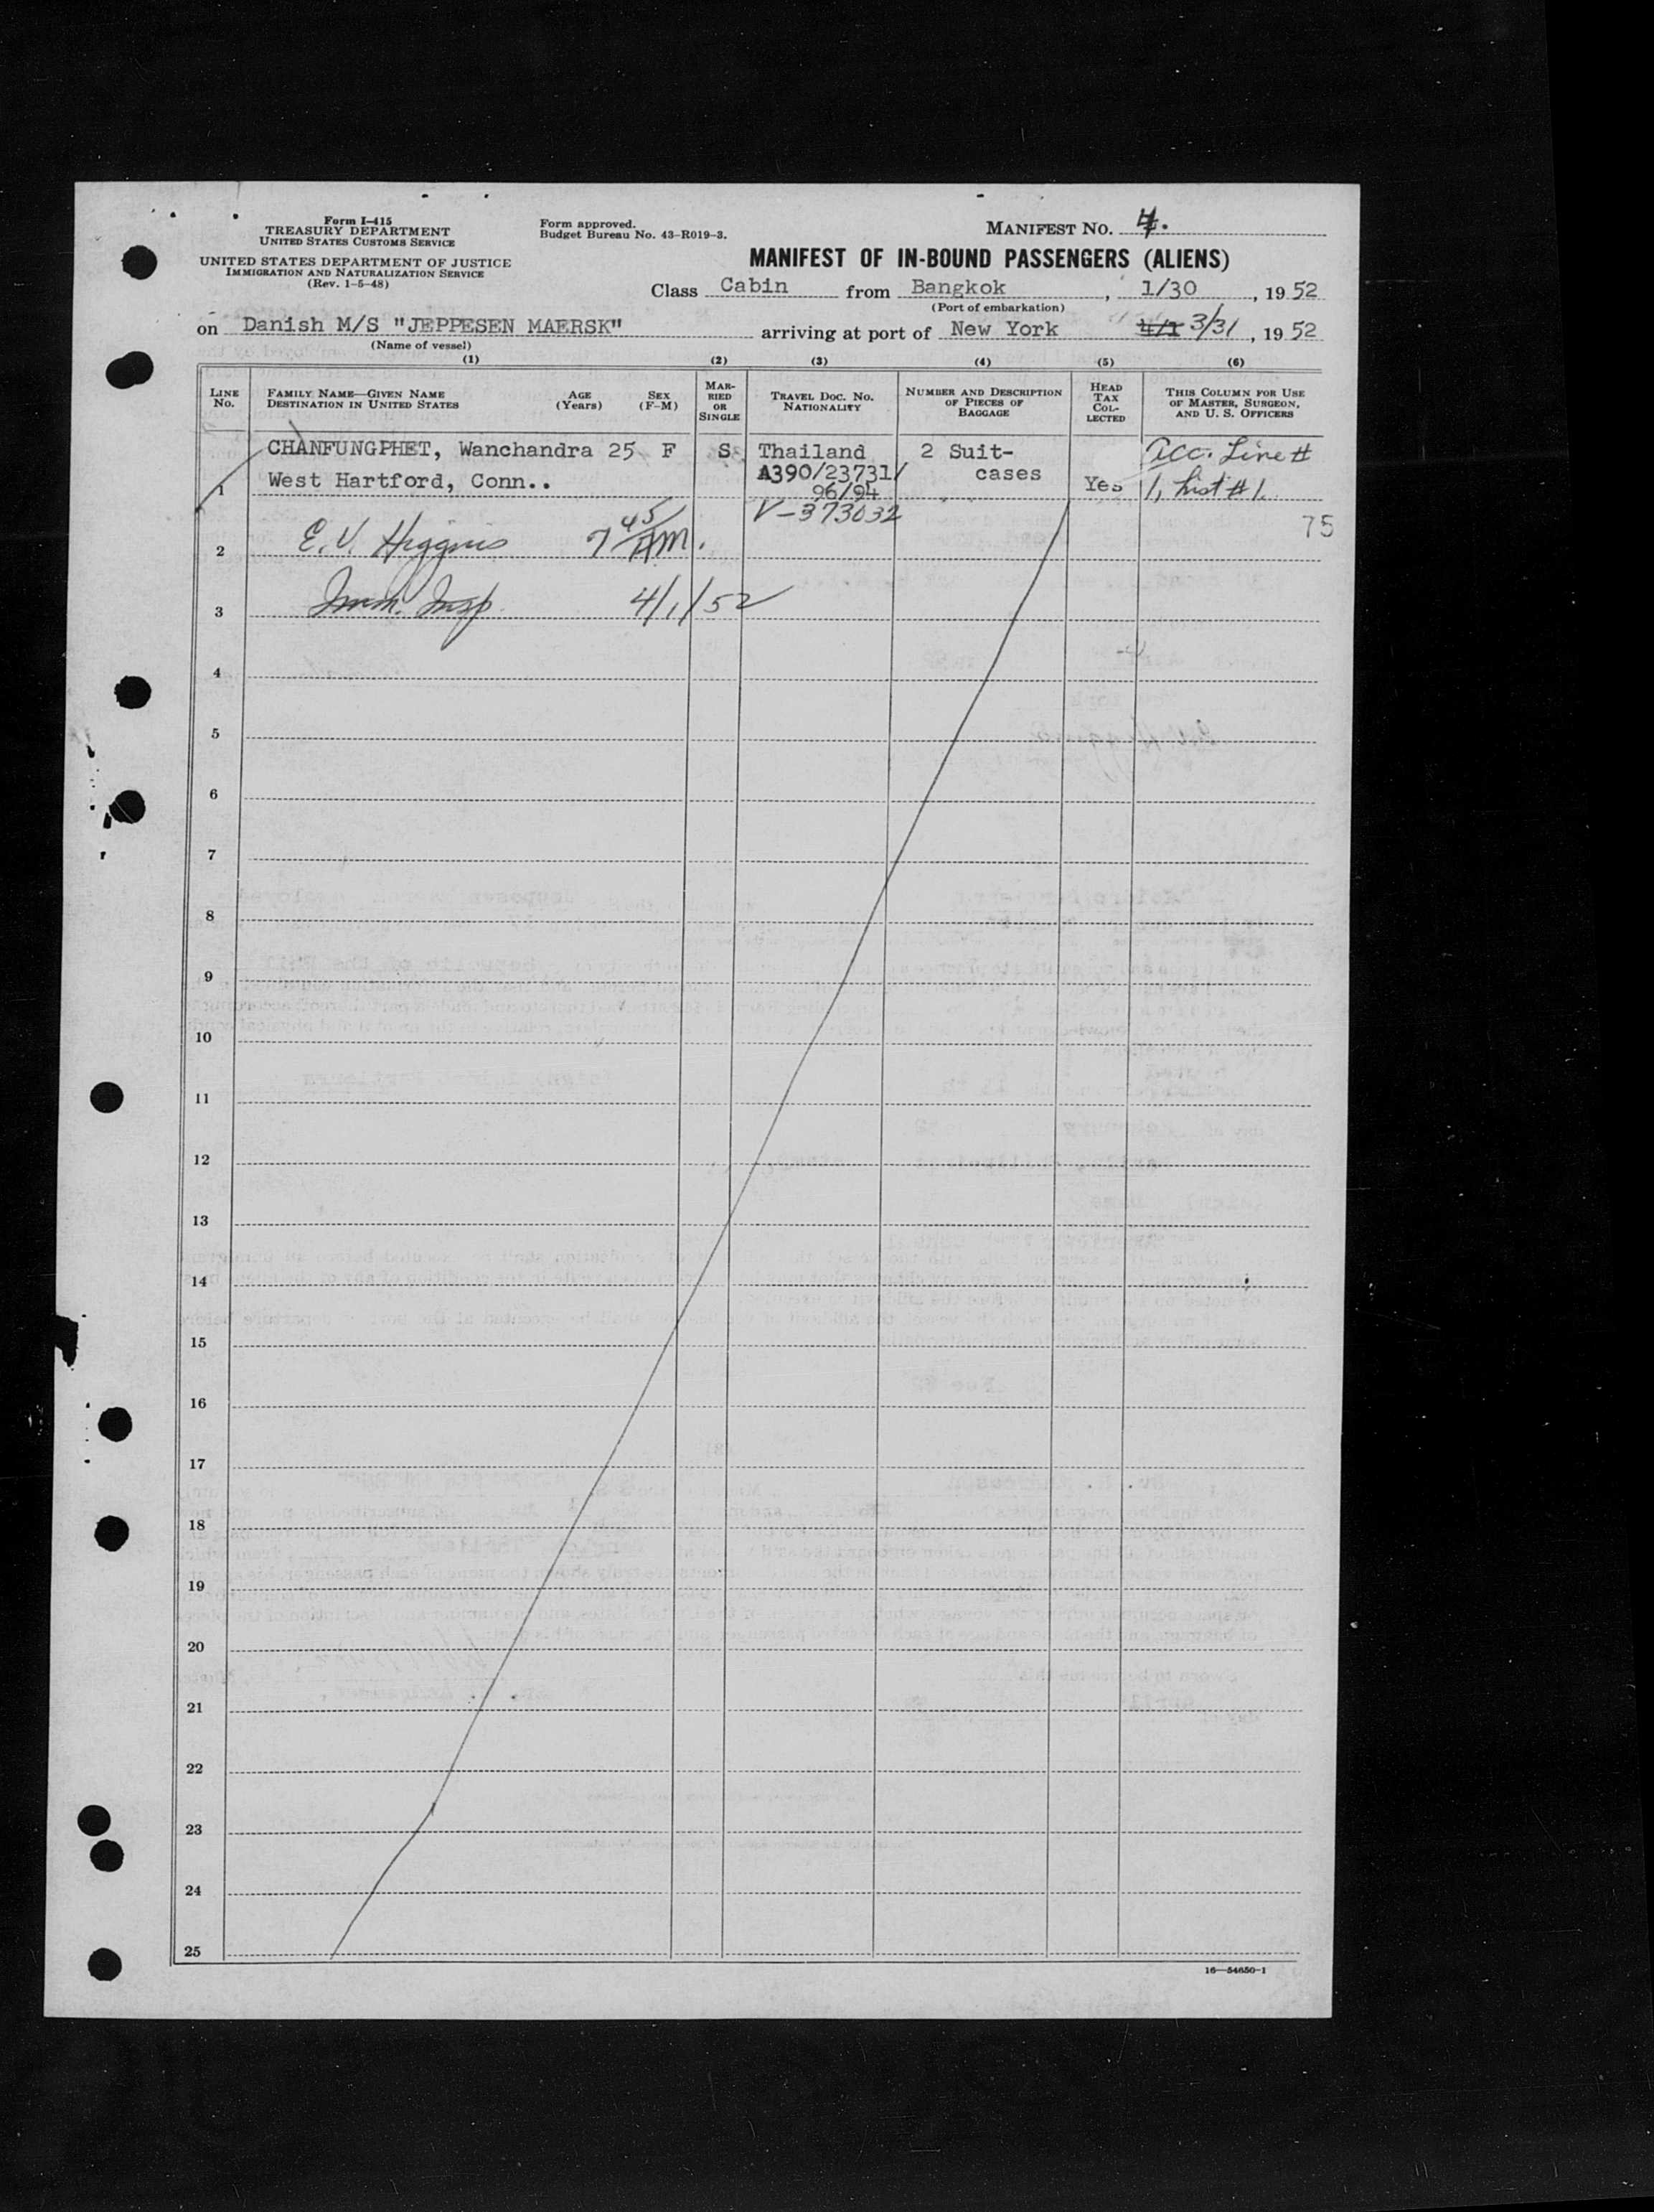 Form I-415
TREASURY DEPARTMENT
UNITED STATES CUSTOMS SERVICE
UNITED STATES DEPARTMENT OF JUSTICE
IMMIGRATION AND NATURALIZATION SERVICE
(Rev. 1-5-48)
Form approved.
Budget Bureau No. 43-R019-3.
MANIFEST NO. 4.
MANIFEST OF IN-BOUND PASSENGERS (ALIENS)
Class Cabin from Bangkok, 1/30, 19 52
(Port of embarkation)
on Danish M/S "JEPPESEN MAERSK" arriving at port of New York 4/1 3/31, 19 52
(Name of vessel)
(1) (2) (3) (4) (5) (6)
LINE No. FAMILY NAME—GIVEN NAME DESTINATION IN UNITED STATES AGE (Years) SEX (F-M) MARRIED OR SINGLE TRAVEL DOC. NO. NATIONALITY NUMBER AND DESCRIPTION OF PIECES OF BAGGAGE HEAD TAX COLLECTED THIS COLUMN FOR USE OF MASTER, SURGEON, AND U. S. OFFICERS
CHANFUNGPHET, Wanchandra 25 F S Thailand 2 Suit- Acc. Line #
1 West Hartford, Conn.. A390/23731/ cases Yes 1, List #1.
96/94
V-373032
75
2 E. V. Higgins 7 45 AM.
3 Imm. Insp. 4/1/52
4
5
6
7
8
9
10
11
12
13
14
15
16
17
18
19
20
21
22
23
24
25
16—54650-1